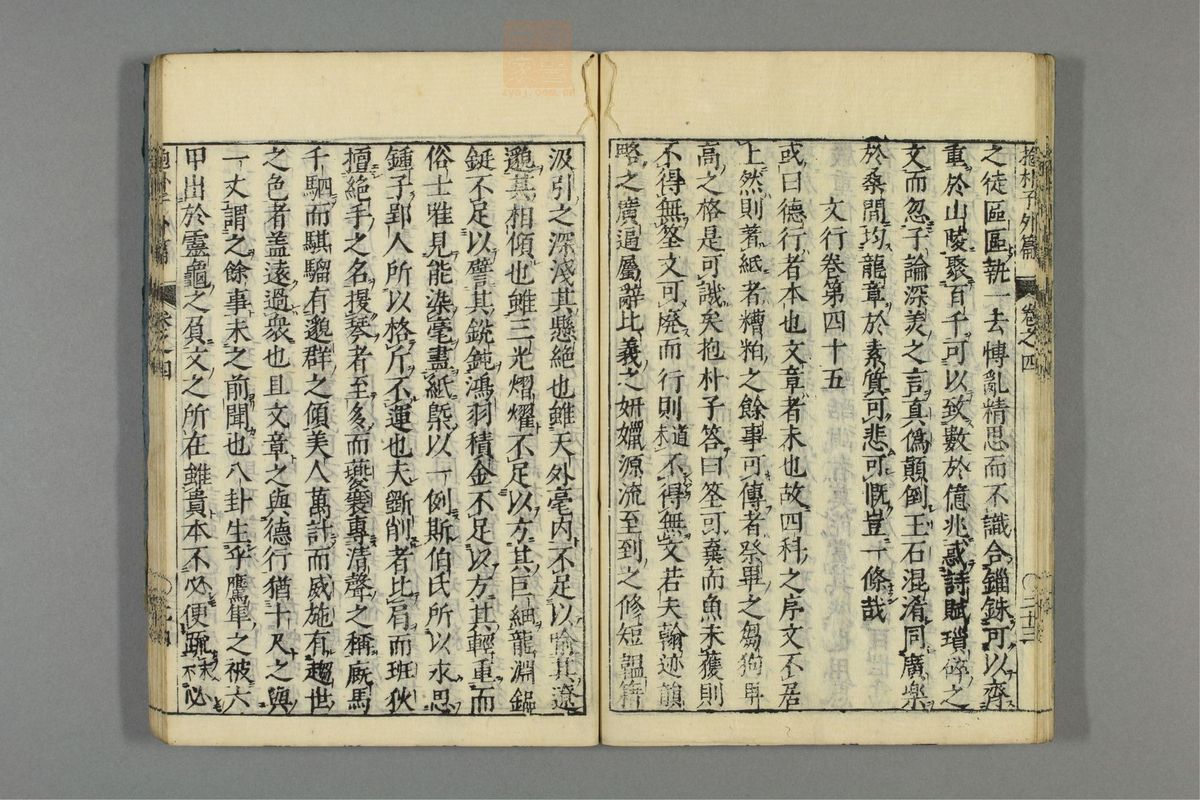 抱朴子外篇 卷之四
之徒區區執一去博亂精思而不識合錙銖可以齊
重於山陵聚百千可以致數於億兆惑詩賦瑣碎之
文而忽子論深美之言真僞顛倒玉石混淆同廣樂
於桑間均龍章於素質可悲可慨豈一條哉
文行卷第四十五
或曰德行者本也文章者末也故四科之序文不居
上然則著紙者糟粕之餘事可傳者祭畢之芻狗卑
高之格是可譏矣抱朴子答曰筌可棄而魚未獲則
不得無筌文可廢而道未行則不得無文若夫翰迹韻
略之廣逼屬辭比義之妍媸源流至到之修短韞籍
汲引之深淺其懸絕也雖天外毫內不足以喻其遼
邈其相傾也雖三光熠燿不足以方其巨細龍淵鉛
鋌不足以譬其銳鈍鴻羽積金不足以方其輕重而
俗士唯見能染毫畫紙槩以一例斯伯氏所以永思
鍾子郢人所以格斤不運也夫斲削者比肩而班狄
擅絕手之名援琴者至多而夔襄專清聲之稱廄馬
千駟而騏騮有邈群之價美人萬計而威施有超世
之色者蓋遠過衆也且文章之與德行猶十尺之與
一丈謂之餘事未之前聞也八卦生乎鷹隼之被六
甲出於靈龜之負文之所在雖貴本不必便疏末不必